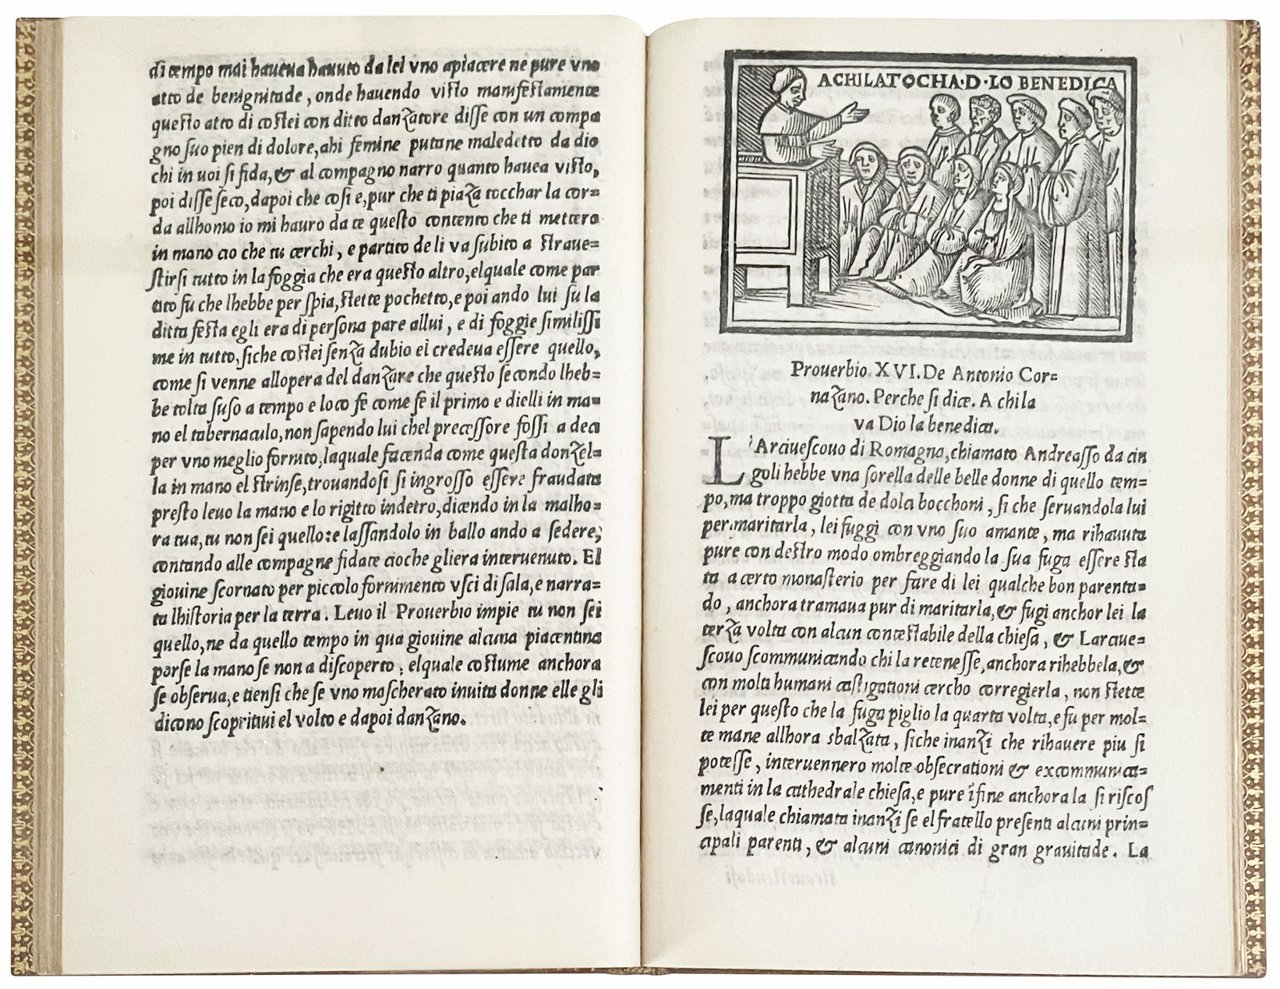 di tempo mai haueua hauuto da lei vno apiacere ne pure vno
atto de benignitade, onde hauendo visto manifestamente
questo atto di costei con ditto danzatore disse con un compa
gno suo pien di dolore, ahi femine putane maledetto da dio
chi in uoi si fida, & al compagno narro quanto hauea visto,
poi disse seco, dapoi che cosi e, pur che ti piaza tocchar la cor=
da allhomo io mi hauro da te questo contento che ti mettero
in mano cio che tu cerchi, e partito de li va subito a straue=
stirsi tutto in la foggia che era questo altro, elquale come par
tito fu che lhebbe per spia, stette pochetto, e poi ando lui su la
ditta festa egli era di persona pare allui, e di foggie similissi
me in tutto, siche costei senza dubio ei credeua essere quello,
come si venne allopera del danzare che questo secondo lheb=
be tolta suso a tempo e loco fe come fe il primo e dielli in ma=
no el tabernaculo, non sapendo lui chel precessore fossi a deci
per vno meglio fornito, laquale facenda come questa donzel=
la in mano el strinse, trouandosi si ingrosso essere fraudata
presto leuo la mano e lo rigitto indetro, dicendo in la malho=
ra tua, tu non sei quello: e lassandolo in ballo ando a sedere,
contando alle compagne fidate cioche gliera interuenuto. El
giouine scornato per piccolo fornimento vsci di sala, e narra=
ta lhistoria per la terra. Leuo il Prouerbio impie tu non sei
quello, ne da quello tempo in qua giouine alcuna piacentina
porse la mano se non a discoperto, elquale costume anchora
se obserua, e tiensi che se vno mascherato inuita donne elle gli
dicono scopritiui el volto e dapoi danzano.
ACHILATOCHA·D·LO BENEDICA
Prouerbio. XVI. De Antonio Cor=
nazano. Perche si dice. A chi la
va Dio la benedica.
L'Arciuescouo di Romagna, chiamato Andreasso da cin
goli hebbe vna sorella delle belle donne di quello tem=
po, ma troppo giotta de dola bocchoni, si che seruandola lui
per maritarla, lei fuggi con vno suo amante, ma rihauuta
pure con destro modo ombreggiando la sua fuga essere sta
ta a certo monasterio per fare di lei qualche bon parenta=
do, anchora tramaua pur di maritarla, & fugi anchor lei la
terza volta con alcun contestabile della chiesa, & Larciue=
scouo scommunicando chi la retenesse, anchora rihebbela, &
con molti humani castigationi cercho corregierla, non stette
lei per questo che la fuga piglio la quarta volta, e fu per mol=
te mane allhora sbalzata, siche inanzi che rihauere piu si
potesse, interuennero molte obsecrationi & excommunica=
menti in la cathedrale chiesa, e pure ifine anchora la si riscos
se, laquale chiamata inanzi se el fratello presenti alcuni prin=
cipali parenti, & alcuni canonici di gran grauitade. La